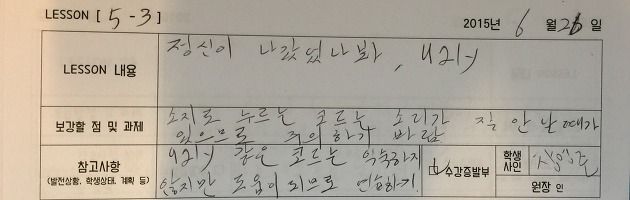 LESSON [ 5-3 ]
2015년 6 월 26 일
LESSON 내용
정신이 나갔었나봐, 내리
보강할 점 및 과제
소지로 누르는 코드는 소리가 잘 안 난 때가
있으므로 주의하기 바람
참고사항
(발전상황, 학생상태, 계획 등)
같은 코드는 익숙하지
않지만 도움이 되므로 연습하기.
수강증발부
학생
사인
원장 인